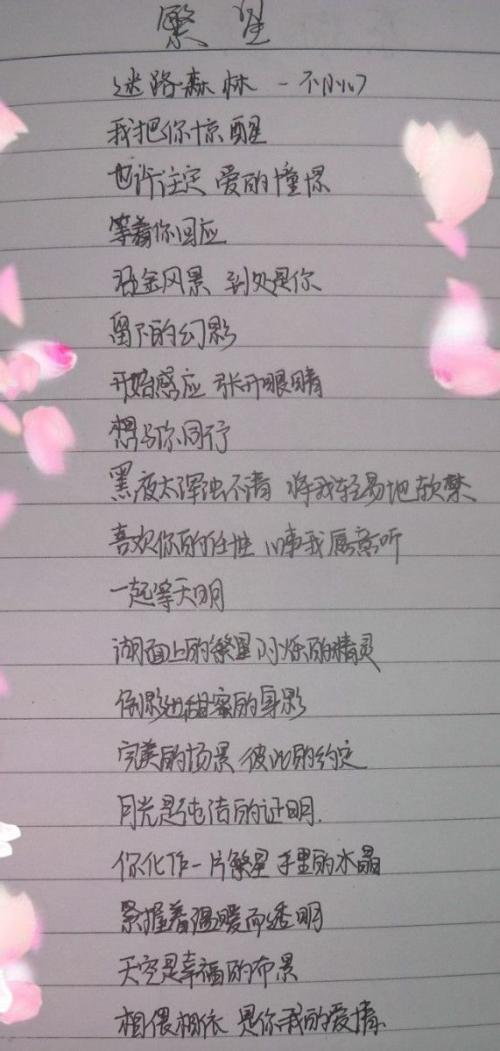 繁星
迷路森林 一不小心
我把你惊醒
也许注定 爱的憧憬
等着你回应
风景 到处是你
留下的幻影
开始感应 张开眼睛
想与你同行
黑夜太浑浊不清 将我轻易地软禁
喜欢你的任性 心事我愿意听
一起等天明
湖面上的繁星 闪烁的精灵
倒影出甜蜜的身影
完美的场景 彼此的约定
月光是纯洁的证明.
你化作一片繁星 手里的水晶
紧握着温暖而透明
天空是幸福的布景
相偎相依 是你我的爱情.